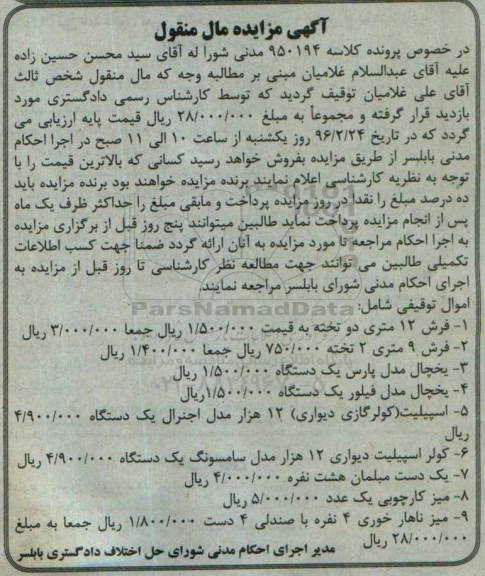 آگهی مزایده مال منقول
در خصوص پرونده کلاسه ۹۵۰۱۹۴ مدنی شورا له آقای سید محسن حسین زاده
علیه آقای عبدالسلام غلامیان مبنی بر مطالبه وجه که مال منقول شخص ثالث
آقای علی غلامیان توقیف گردید که توسط کارشناس رسمی دادگستری مورد
بازدید قرار گرفته و مجموعاً به مبلغ ۲۸/۰۰۰/۰۰۰ ریال قیمت پایه ارزیابی می
گردد که در تاریخ ۹۶/۲/۲۴ روز یکشنبه از ساعت ۱۰ الی ۱۱ صبح در اجرا احکام
مدنی بابلسر از طریق مزایده بفروش خواهد رسید کسانی که بالاترین قیمت را با
توجه به نظریه کارشناسی اعلام نمایند برنده مزایده خواهند بود برنده مزایده باید
ده درصد مبلغ را نقدا در روز مزایده پرداخت و مابقی مبلغ را حداکثر ظرف یک ماه
پس از انجام مزایده پرداخت نماید طالبین میتوانند پنج روز قبل از برگزاری مزایده
به اجرا احکام مراجعه تا مورد مزایده به آنان ارائه گردد ضمنا جهت کسب اطلاعات
تکمیلی طالبین می توانند جهت مطالعه نظر کارشناسی تا روز قبل از مزایده به
اجرای احکام مدنی شورای بابلسر مراجعه نمایند.
ParsNamadData
اموال توقیفی شامل:
۱- فرش ۱۲ متری دو تخته به قیمت ۱/۵۰۰/۰۰۰ ریال جمعا ۳/۰۰۰/۰۰۰ ریال
۲- فرش ۹ متری ۲ تخته ۷۵۰/۰۰۰ ریال جمعا ۱/۴۰۰/۰۰۰ ریال
۳- یخچال مدل پارس یک دستگاه ۱/۵۰۰/۰۰۰ ریال
۴- یخچال مدل فیلور یک دستگاه ۱/۵۰۰/۰۰۰ریال
۵- اسپیلیت(کولرگازی دیواری) ۱۲ هزار مدل اجنرال یک دستگاه ۴/۹۰۰/۰۰۰
ریال
۶- کولر اسپیلیت دیواری ۱۲ هزار مدل سامسونگ یک دستگاه ۴/۹۰۰/۰۰۰ ریال
۷- یک دست مبلمان هشت نفره ۴/۰۰۰/۰۰۰ ریال
۸- میز کارچوبی یک عدد ۵/۰۰۰/۰۰۰ ریال
۹- میز ناهار خوری ۴ نفره با صندلی ۴ دست ۱/۸۰۰/۰۰۰ ریال جمعا به مبلغ
۲۸/۰۰۰/۰۰۰ ریال مدیر اجرای احکام مدنی شورای حل اختلاف دادگستری بابلسر